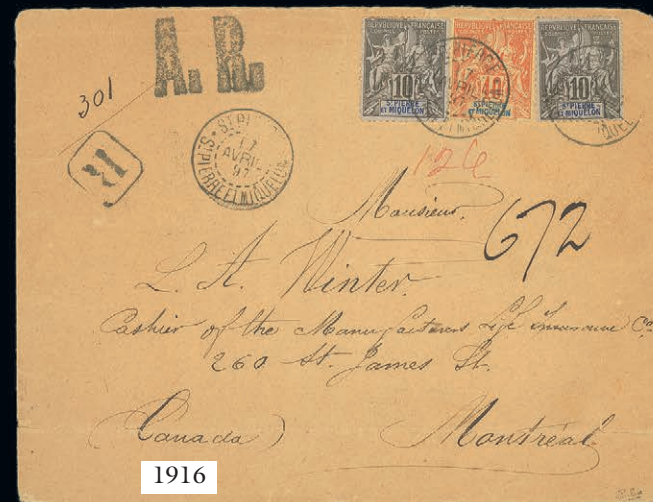 A. R.
301
R
REPUBLIQUE FRANÇAISE
10
ST PIERRE
ET MIQUELON
REPUBLIQUE FRANÇAISE
40
REPUBLIQUE FRANÇAISE
10
ST PIERRE
ET MIQUELON
17
AVRIL
97
ST PIERRE ET MIQUELON
126
672
Monsieur
L. A. Winter.
Cashier of the Manufacturers Life Insurance Co
260 St. James St.
(Canada) Montréal
1916